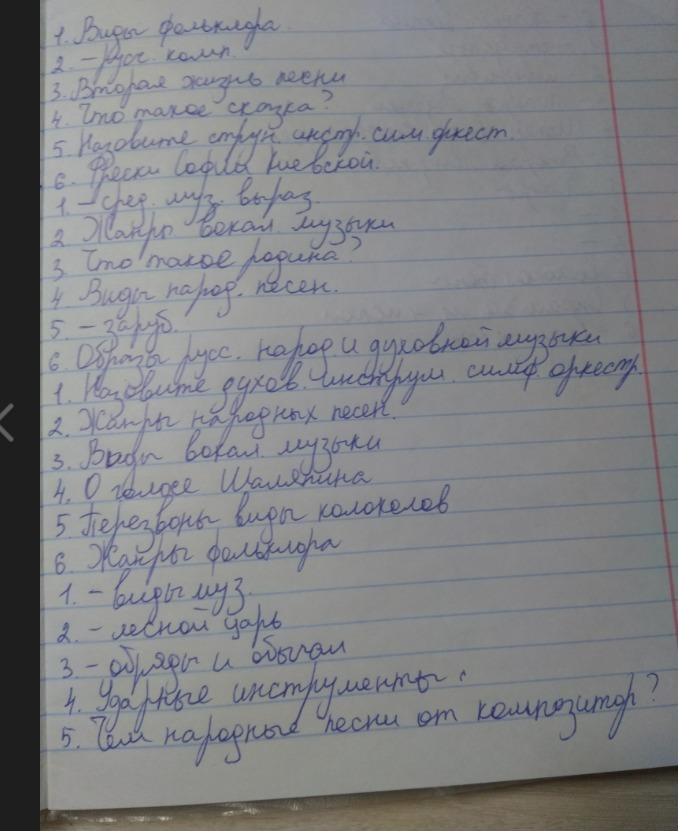 1. Виды фольклора
2. - русс. комп.
3. Вторая жизнь песни
4. Что такое сказка?
5. Назовите струн. инстр. сим. оркест.
6. Фрески Софьи Киевской.
1. - сред. муз. выраз.
2 Жанры вокал. музыки
3. Что такое родина?
4 Виды народ. песен.
5 - заруб.
6. Образы русс. народ и духовной музыки
1. Назовите духов. инструм. симф. оркестр.
2. Жанры народных песен.
3. Виды вокал. музыки
4. О голосе Шаляпина
5. Перезвоны виды колоколов
6. Жанры фольклора
1. - виды муз.
2. - лесной царь
3. - обряды и обычаи
4. Ударные инструменты
5. Чем народные песни от композитор?